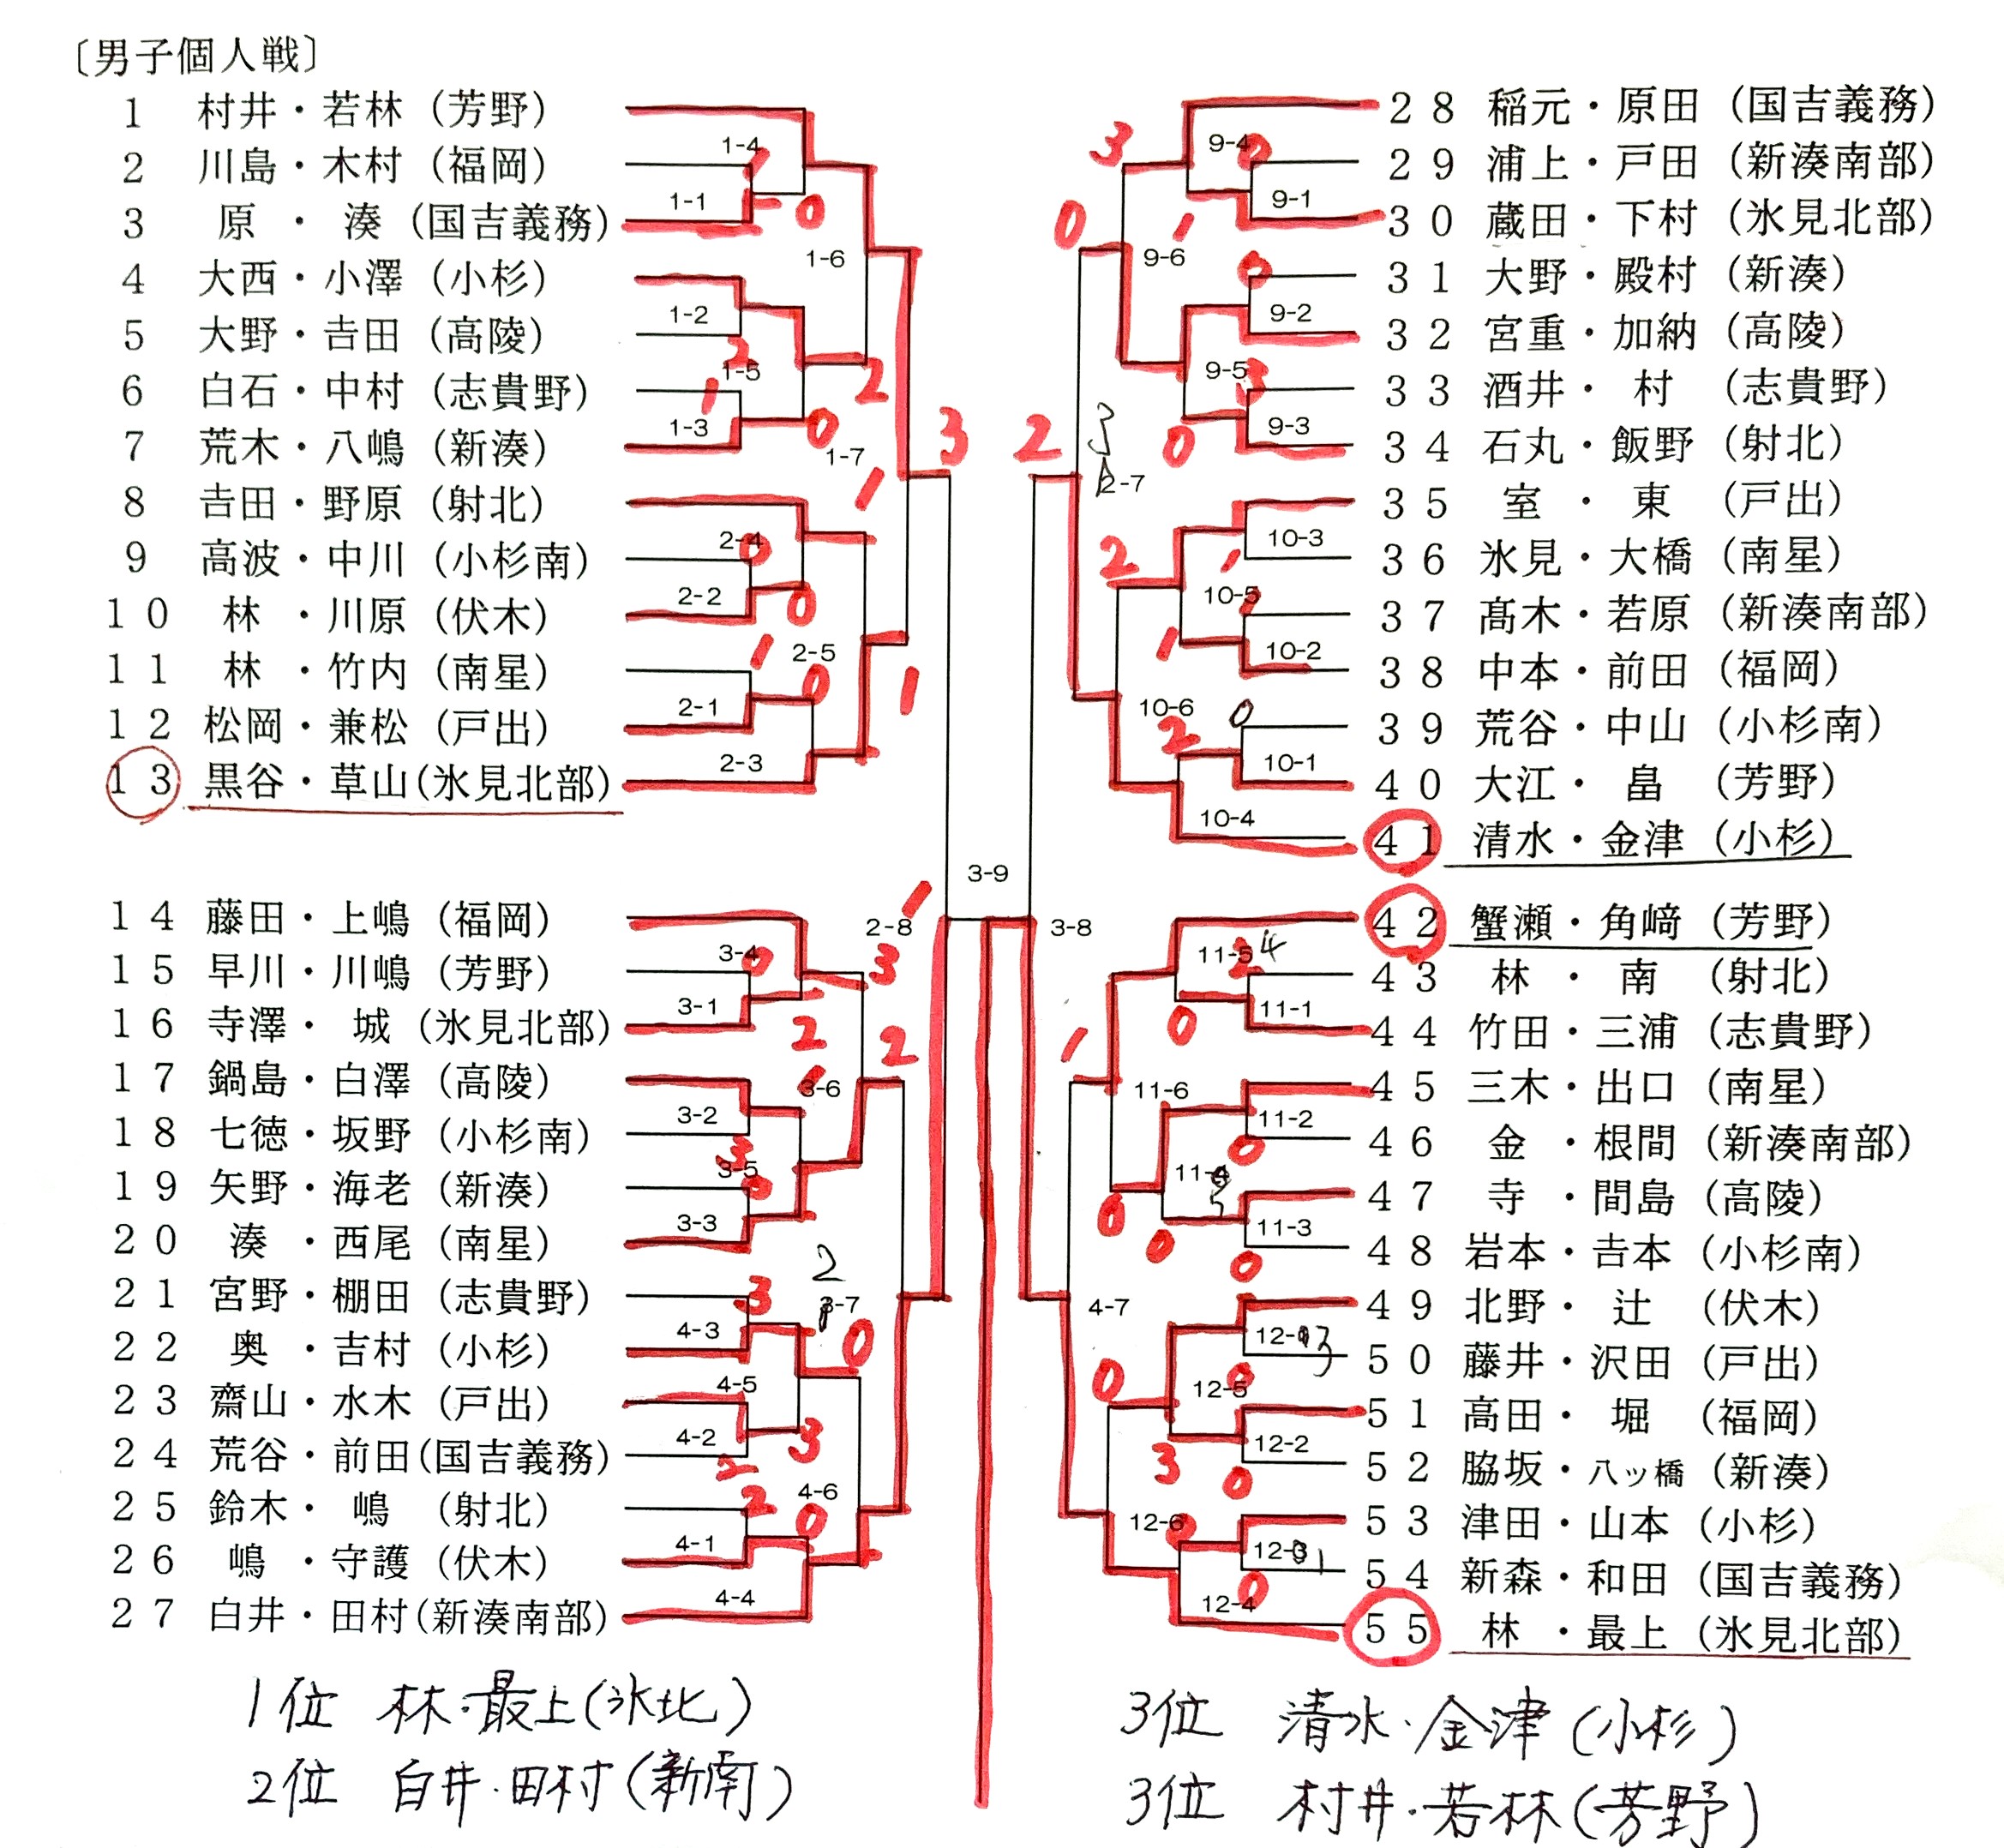 〔男子個人戦〕
1 村井・若林 (芳野)
2 川島・木村 (福岡)
3 原・湊 (国吉義務)
4 大西・小澤 (小杉)
5 大野・吉田 (高陵)
6 白石・中村 (志貴野)
7 荒木・八嶋 (新湊)
8 吉田・野原 (射北)
9 高波・中川 (小杉南)
10 林・川原 (伏木)
11 林・竹内 (南星)
12 松岡・兼松 (戸出)
13 黒谷・草山 (氷見北部)
14 藤田・上嶋 (福岡)
15 早川・川嶋 (芳野)
16 寺澤・城 (氷見北部)
17 鍋島・白澤 (高陵)
18 七徳・坂野 (小杉南)
19 矢野・海老 (新湊)
20 湊・西尾 (南星)
21 宮野・棚田 (志貴野)
22 奥・吉村 (小杉)
23 齋山・水木 (戸出)
24 荒谷・前田 (国吉義務)
25 鈴木・嶋 (射北)
26 嶋・守護 (伏木)
27 白井・田村 (新湊南部)
1-4
1-1
1-6
1-2
1-5
1-3
1-7
2-4
2-2
2-5
2-1
2-3
3-9
2-8
3-4
3-1
3-6
3-2
3-5
3-3
3-7
4-3
4-5
4-2
4-6
4-1
4-4
1
0
2
1
2
0
3
1
0
0
1
0
1
1
0
3
2
2
1
3
0
2
3
0
3
2
2
0
28 稲元・原田 (国吉義務)
29 浦上・戸田 (新湊南部)
30 蔵田・下村 (氷見北部)
31 大野・殿村 (新湊)
32 宮重・加納 (高陵)
33 酒井・村 (志貴野)
34 石丸・飯野 (射北)
35 室・東 (戸出)
36 氷見・大橋 (南星)
37 髙木・若原 (新湊南部)
38 中本・前田 (福岡)
39 荒谷・中山 (小杉南)
40 大江・畠 (芳野)
41 清水・金津 (小杉)
42 蟹瀬・角﨑 (芳野)
43 林・南 (射北)
44 竹田・三浦 (志貴野)
45 三木・出口 (南星)
46 金・根間 (新湊南部)
47 寺・間島 (高陵)
48 岩本・吉本 (小杉南)
49 北野・辻 (伏木)
50 藤井・沢田 (戸出)
51 高田・堀 (福岡)
52 脇坂・八ッ橋 (新湊)
53 津田・山本 (小杉)
54 新森・和田 (国吉義務)
55 林・最上 (氷見北部)
9-4
9-1
9-6
9-2
9-5
9-3
2-7
10-3
10-5
10-2
10-6
10-1
10-4
3-8
11-5
11-1
11-6
11-2
11-3
4-7
12-5
12-2
12-6
12-4
3
0
1
0
0
3
0
2
3
2
1
1
1
2
0
2
4
0
1
0
0
0
0
3
0
0
3
0
0
0
1位 林・最上(氷北)
2位 白井・田村(新南)
3位 清水・金津(小杉)
3位 村井・若林(芳野)